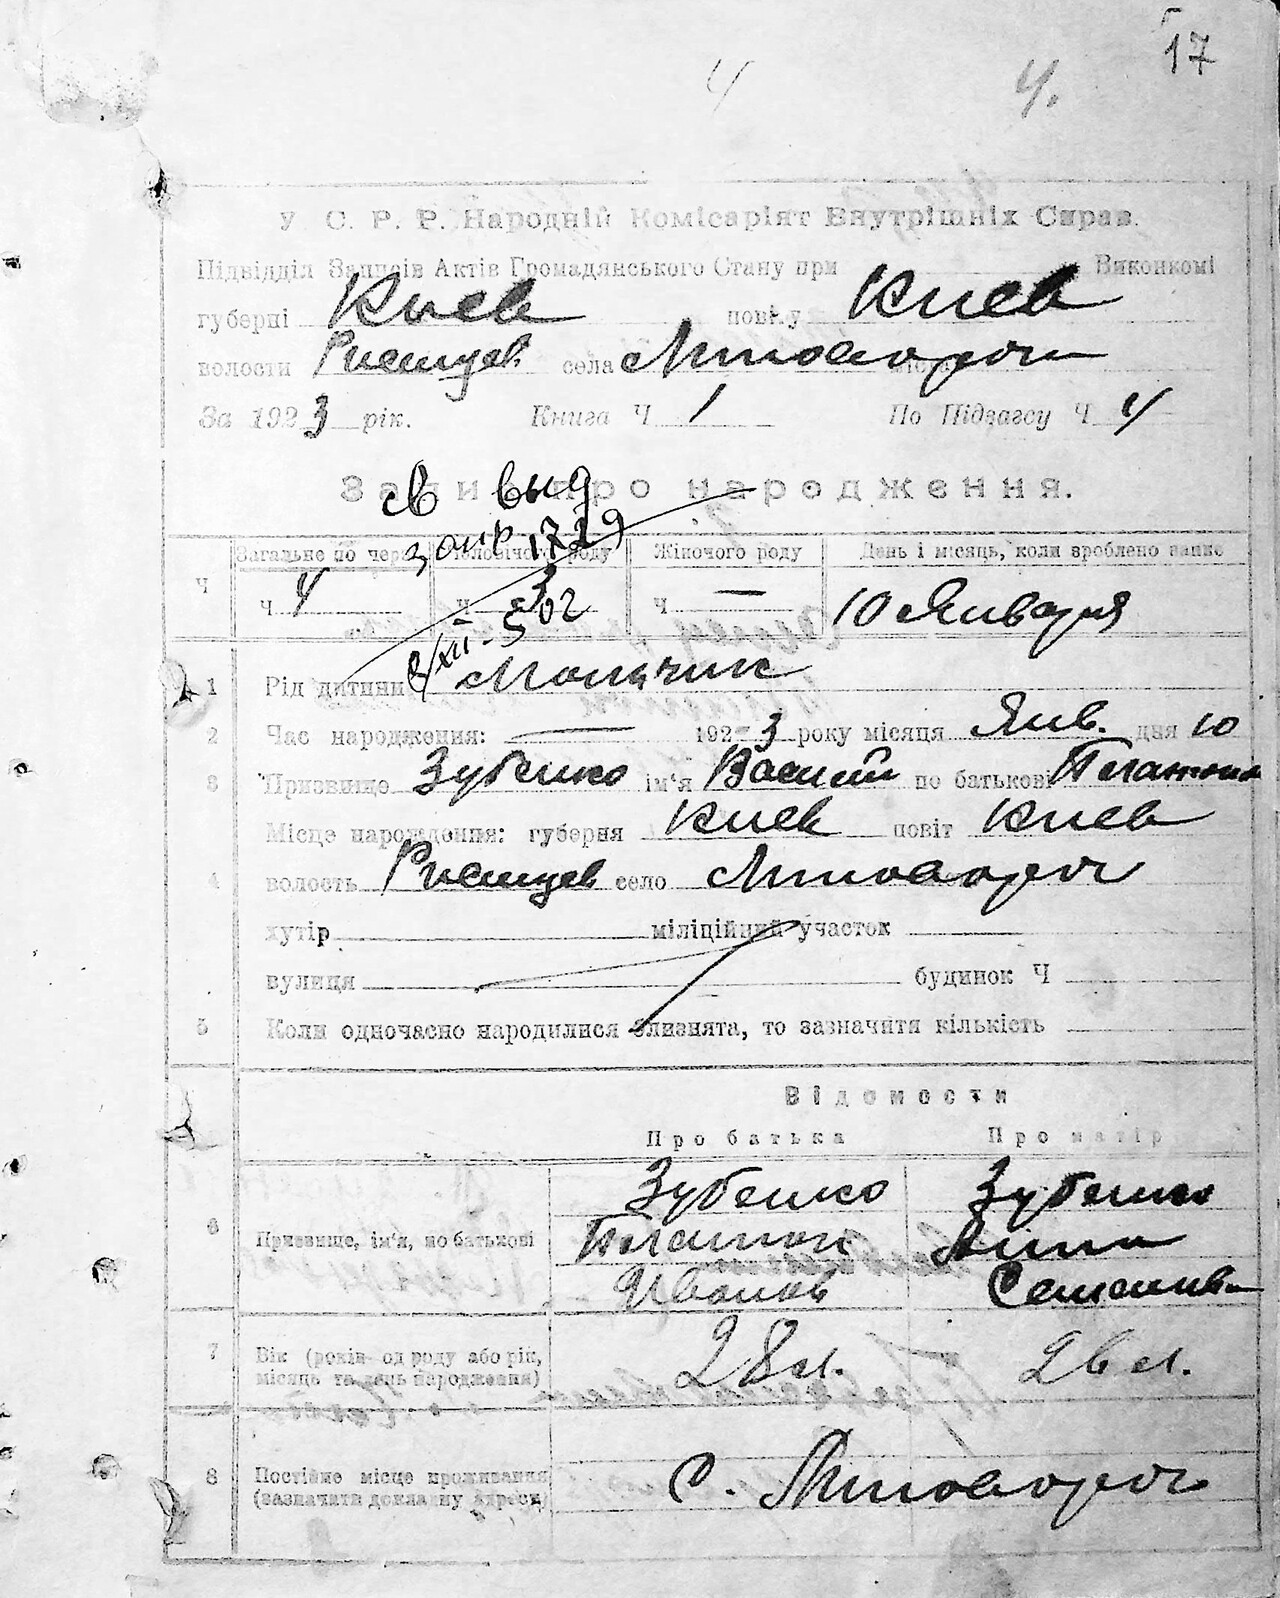 17
4 4.
У С. Р. Р. Народній Комісаріят Внутрішніх Справ.
Підвідділ Записів Актів Громадянського Стану при Виконкомі
губерні Кыев повіту Киев
волости села
За 1923 рік. Книга Ч 1 По Підзагсу Ч 4
Запис про народження.
св выд
Загальне по черзі Чоловічого роду Жіночого роду День і місяць, коли зроблено запис
Ч Ч 4 Ч 3 Ч — 10 Января
1 Рід дитини Мальчик
2 Час народження: — 1923 року місяця Янв. дня 10
3 Призвище Зубенко ім'я Василий по батькові
Місце народження: губерня Киев повіт Киев
4 волость село
хутір міліційний участок
вулиця будинок Ч
5 Коли одночасно народилися близнята, то зазначити кількість
Відомости
Про батька Про матір
Зубенко Зубенко
6 Призвище, ім'я, по батькові Анна
Иванов
7 Вік (років од роду або рік, 28 л. 26 л.
місяць та день народження)
8 Постійне місце проживання С.
(зазначити докладну адресу)